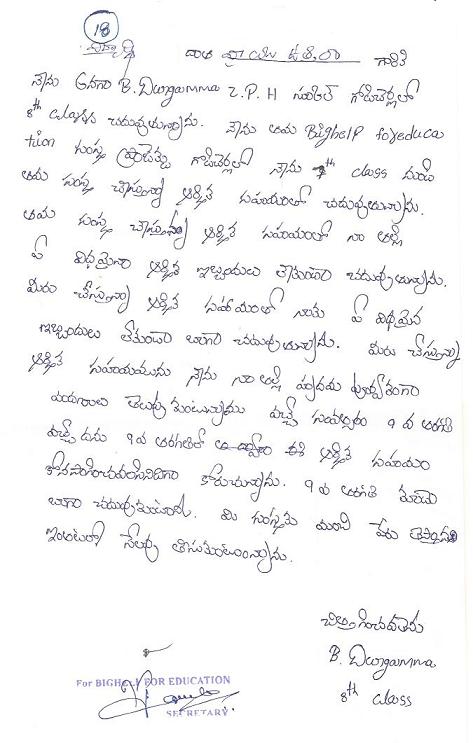 18
దాత గారికి
నేను అనగా B. Durgamma Z.P.H స్కూల్ గొడిచెర్లలో
8th class చదువుతున్నాను. నేను అయ Bighelp foreduca
tion సంస్థ గొడిచెర్లలో నేను 7th class నుండి
అయ సంస్థ చేస్తున్న ఆర్థిక సహాయంతో చదువుతున్నాను.
అయ సంస్థ చేస్తున్న ఆర్థిక సహాయంతో నా తల్లి
ఏ విధమైన ఆర్థిక ఇబ్బందులు లేకుండా చదువుతున్నాను.
మీరు చేస్తున్న ఆర్థిక సహాయంతో నాకు ఏ విధమైన
ఇబ్బందులు లేకుండా బాగా చదువుతున్నాను. మీరు చేస్తున్న
ఆర్థిక సహాయమును నేను నా తల్లి హృదయ పూర్వకంగా
తెలుపుకుంటున్నాము వచ్చే సంవత్సరం 9 వ తరగతి
9 వ తరగతిలో ఈ ఆర్థిక సహాయం
కొనసాగించవలసినదిగా కోరుచున్నాను. 9 వ తరగతి
బాగా చదువుకుంటాను. మీ సంస్థకు మంచి పేరు
ఇంతటితో సెలవు తీసుకుంటున్నాను.
చిత్తగించవలెను
B. Durgamma
8th class
For BIGHELP FOR EDUCATION
SECRETARY.